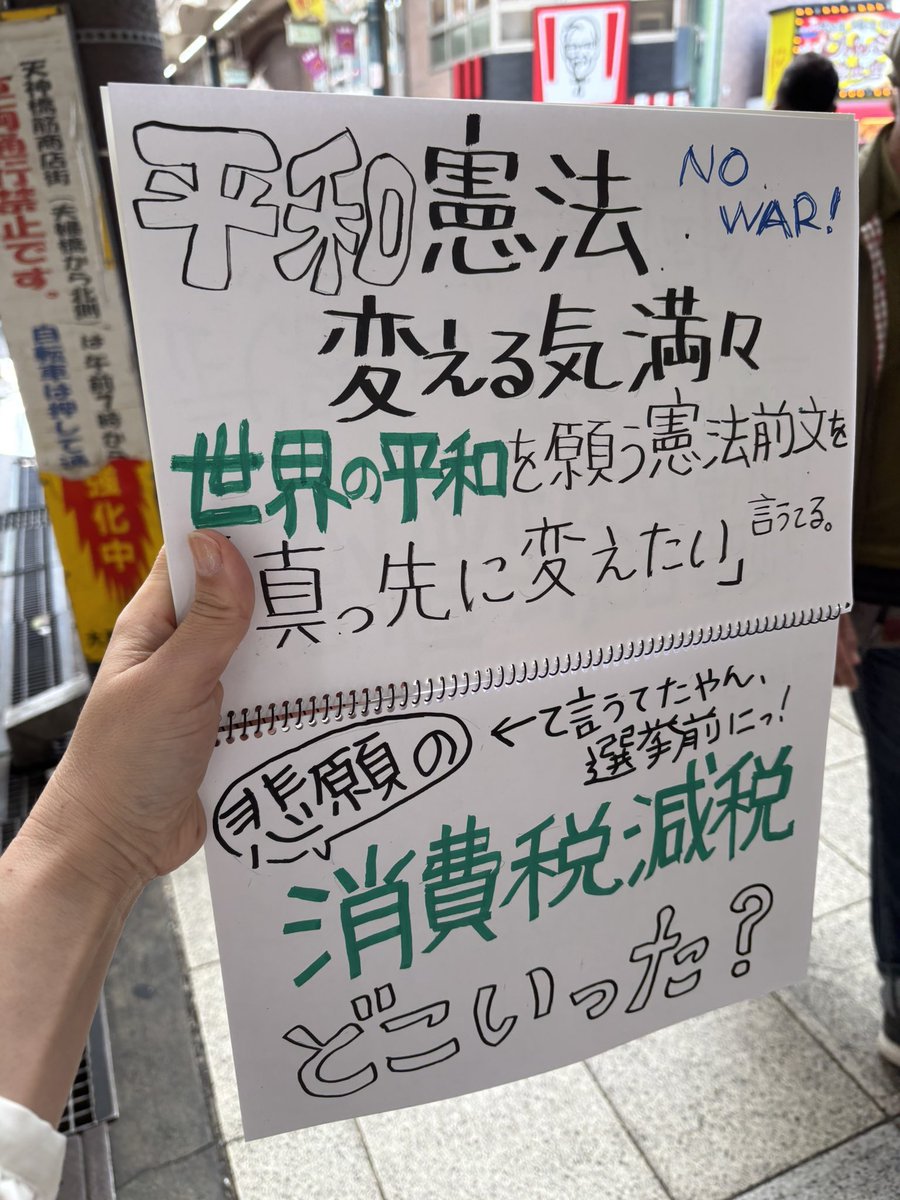 平和憲法
NO
WAR!
変える気満々
世界の平和を願う憲法前文を
「真っ先に変えたい」言うてる。
悲願の
←て言うてたやん、
選挙前にっ!
消費税減税
どこいった?
天神橋筋商店街(天神橋から北側)は午前7時から
車両通行禁止です。
自転車は押して通
進化中